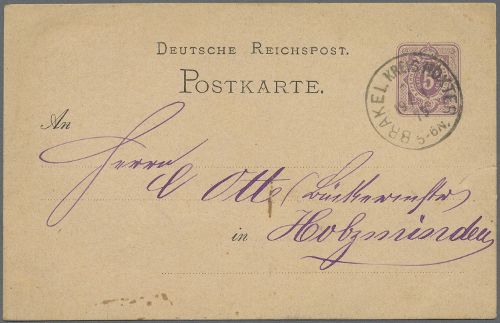 DEUTSCHE REICHSPOST.
POSTKARTE.
5
BRAKEL KREIS HÖXTER
5-6N.
An
Herrn C Otte (Bäckermstr)
in Holzminden